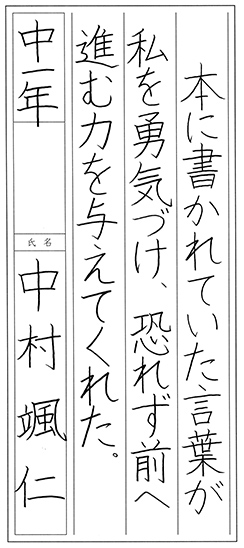 本に書かれていた言葉が
私を勇気づけ、恐れず前へ
進む力を与えてくれた。
中一年
氏名
中村颯仁